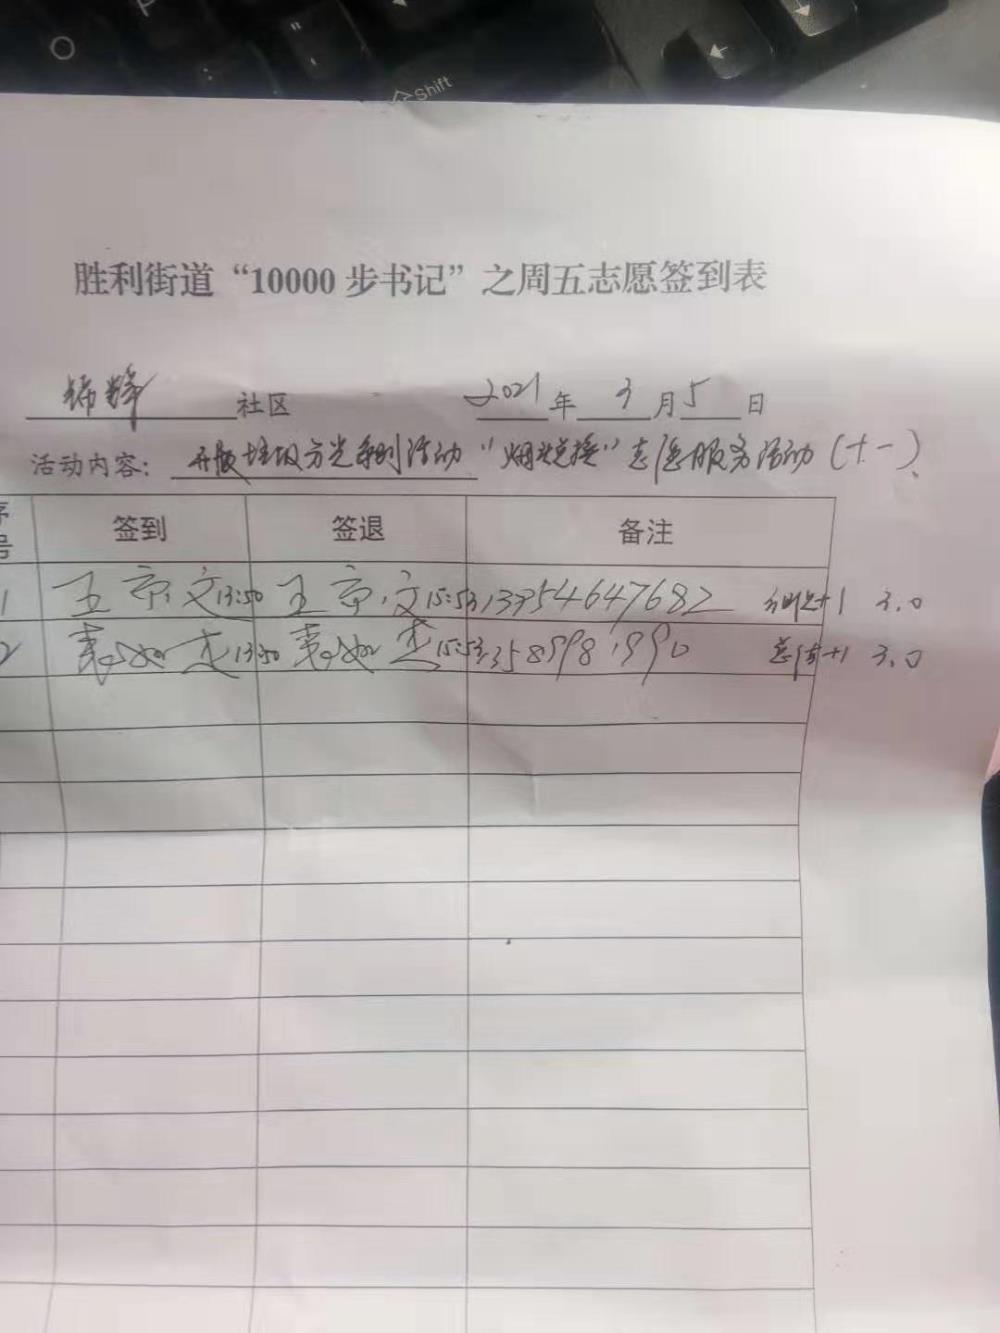 Shift
胜利街道“10000步书记”之周五志愿签到表
锦绣社区 2021年3月5日
活动内容：开展垃圾分类系列活动“烟头兑换”志愿服务活动（十一）
序号 签到 签退 备注
1 王京文13:50 王京文15:53 13754647682 +1 3.0
2 13:50 15:53 13589981990 +1 3.0